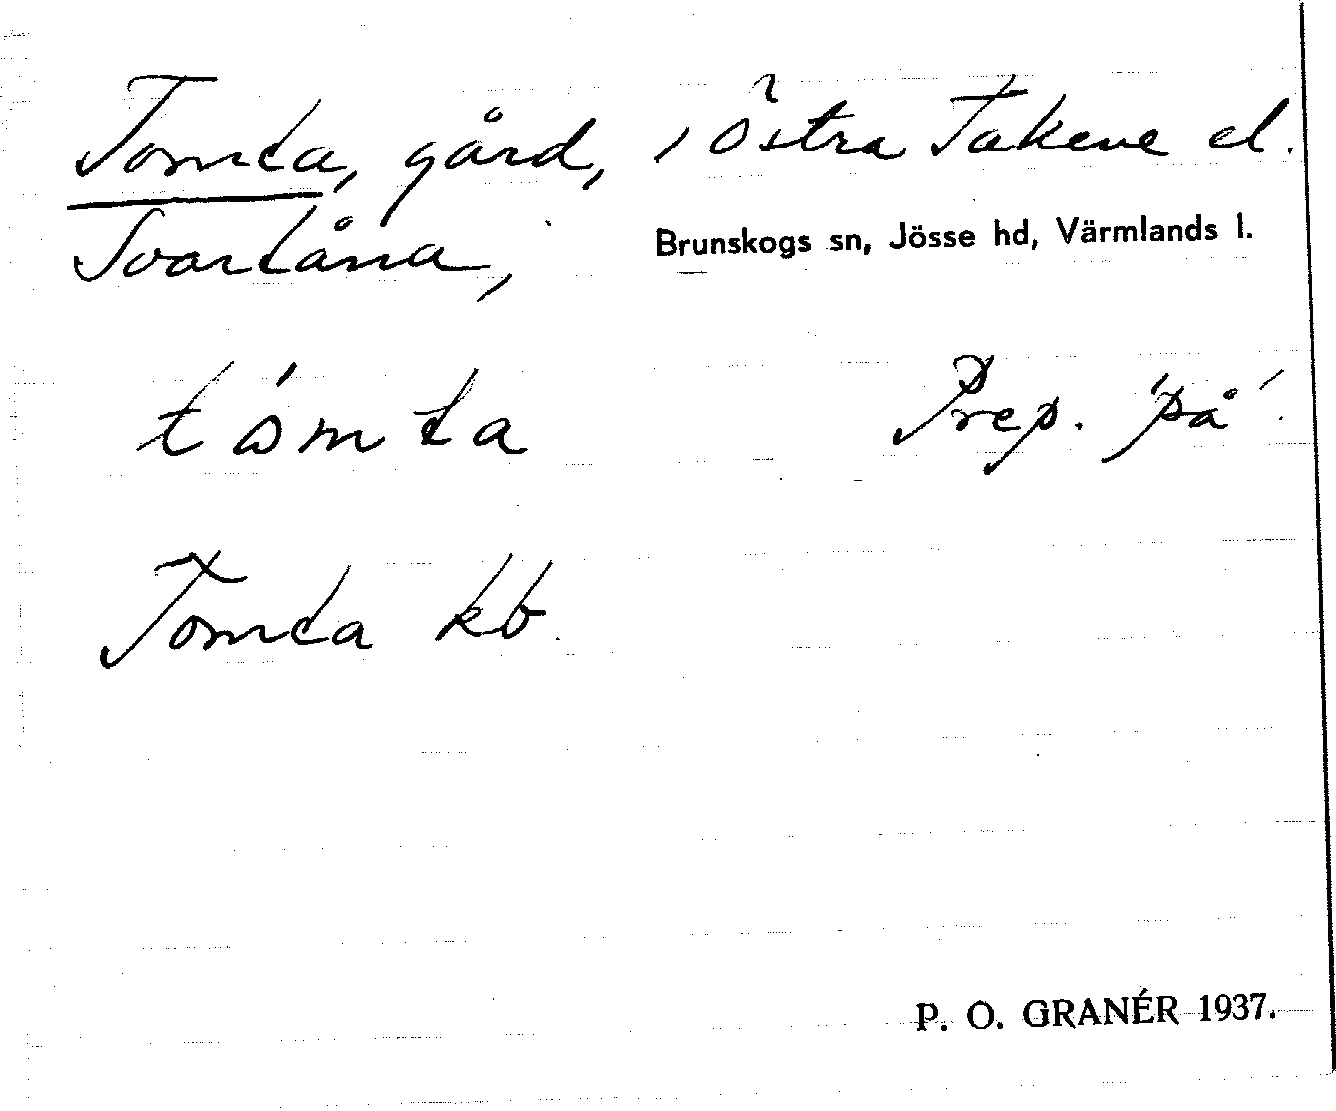 Tomta, gård, i Östra Takene el.
Svartåna,
Brunskogs sn, Jösse hd, Värmlands l.
tòmta Prep. 'på'.
Tomta kb.
P. O. GRANÉR 1937.